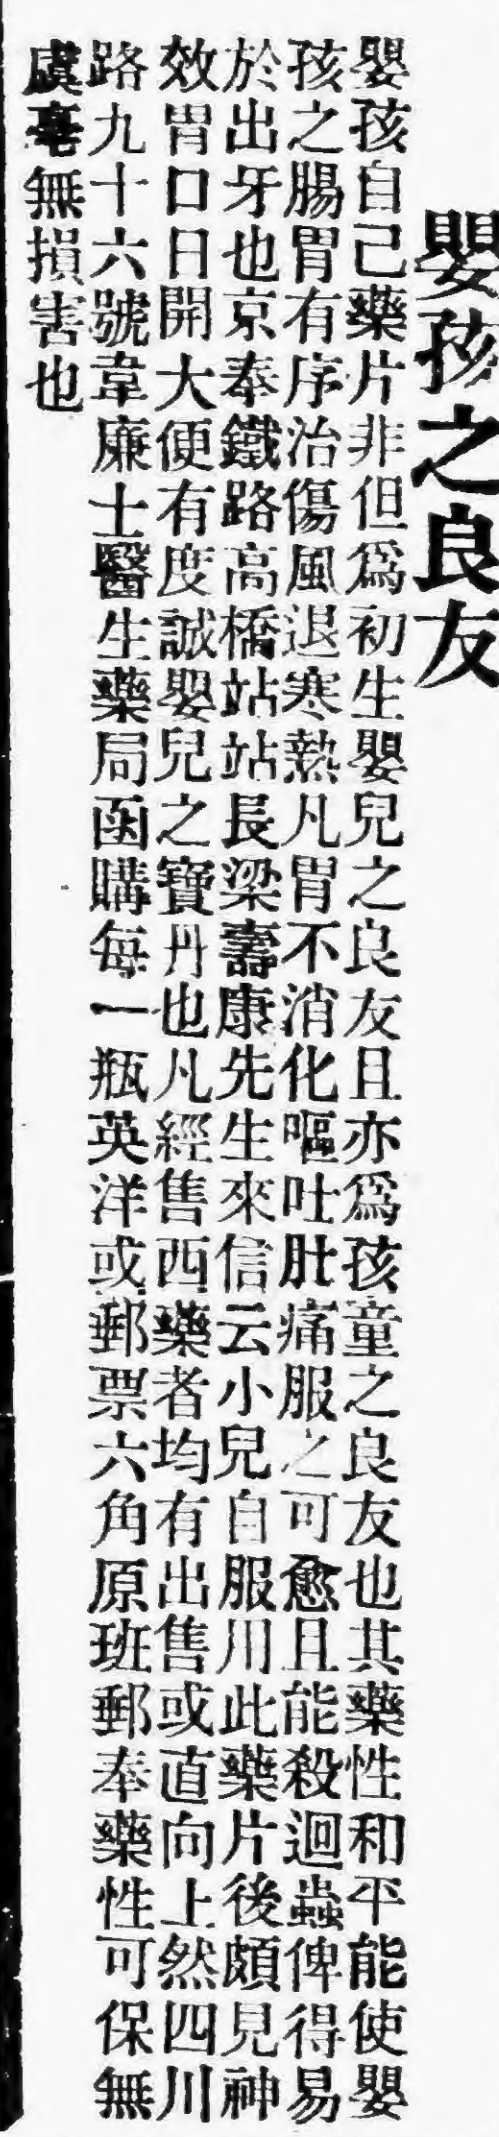 嬰孩之良友
嬰孩自己藥片非但爲初生嬰兒之良友且亦爲孩童之良友也其藥性和平能使嬰
孩之腸胃有序治傷風退寒熱凡胃不消化嘔吐肚痛服之可愈且能殺迴蟲俾得易
於出牙也京奉鐵路高橋站站長梁壽康先生來信云小兒自服川此藥片後頗見神
效胃口日開大便有度誠嬰兒之寶丹也凡經售西藥者均有出售或直向上然四川
路九十六號韋廉士醫生藥局函購每一瓶英洋或郵票六角原班郵奉藥性可保無
虞毫無損害也